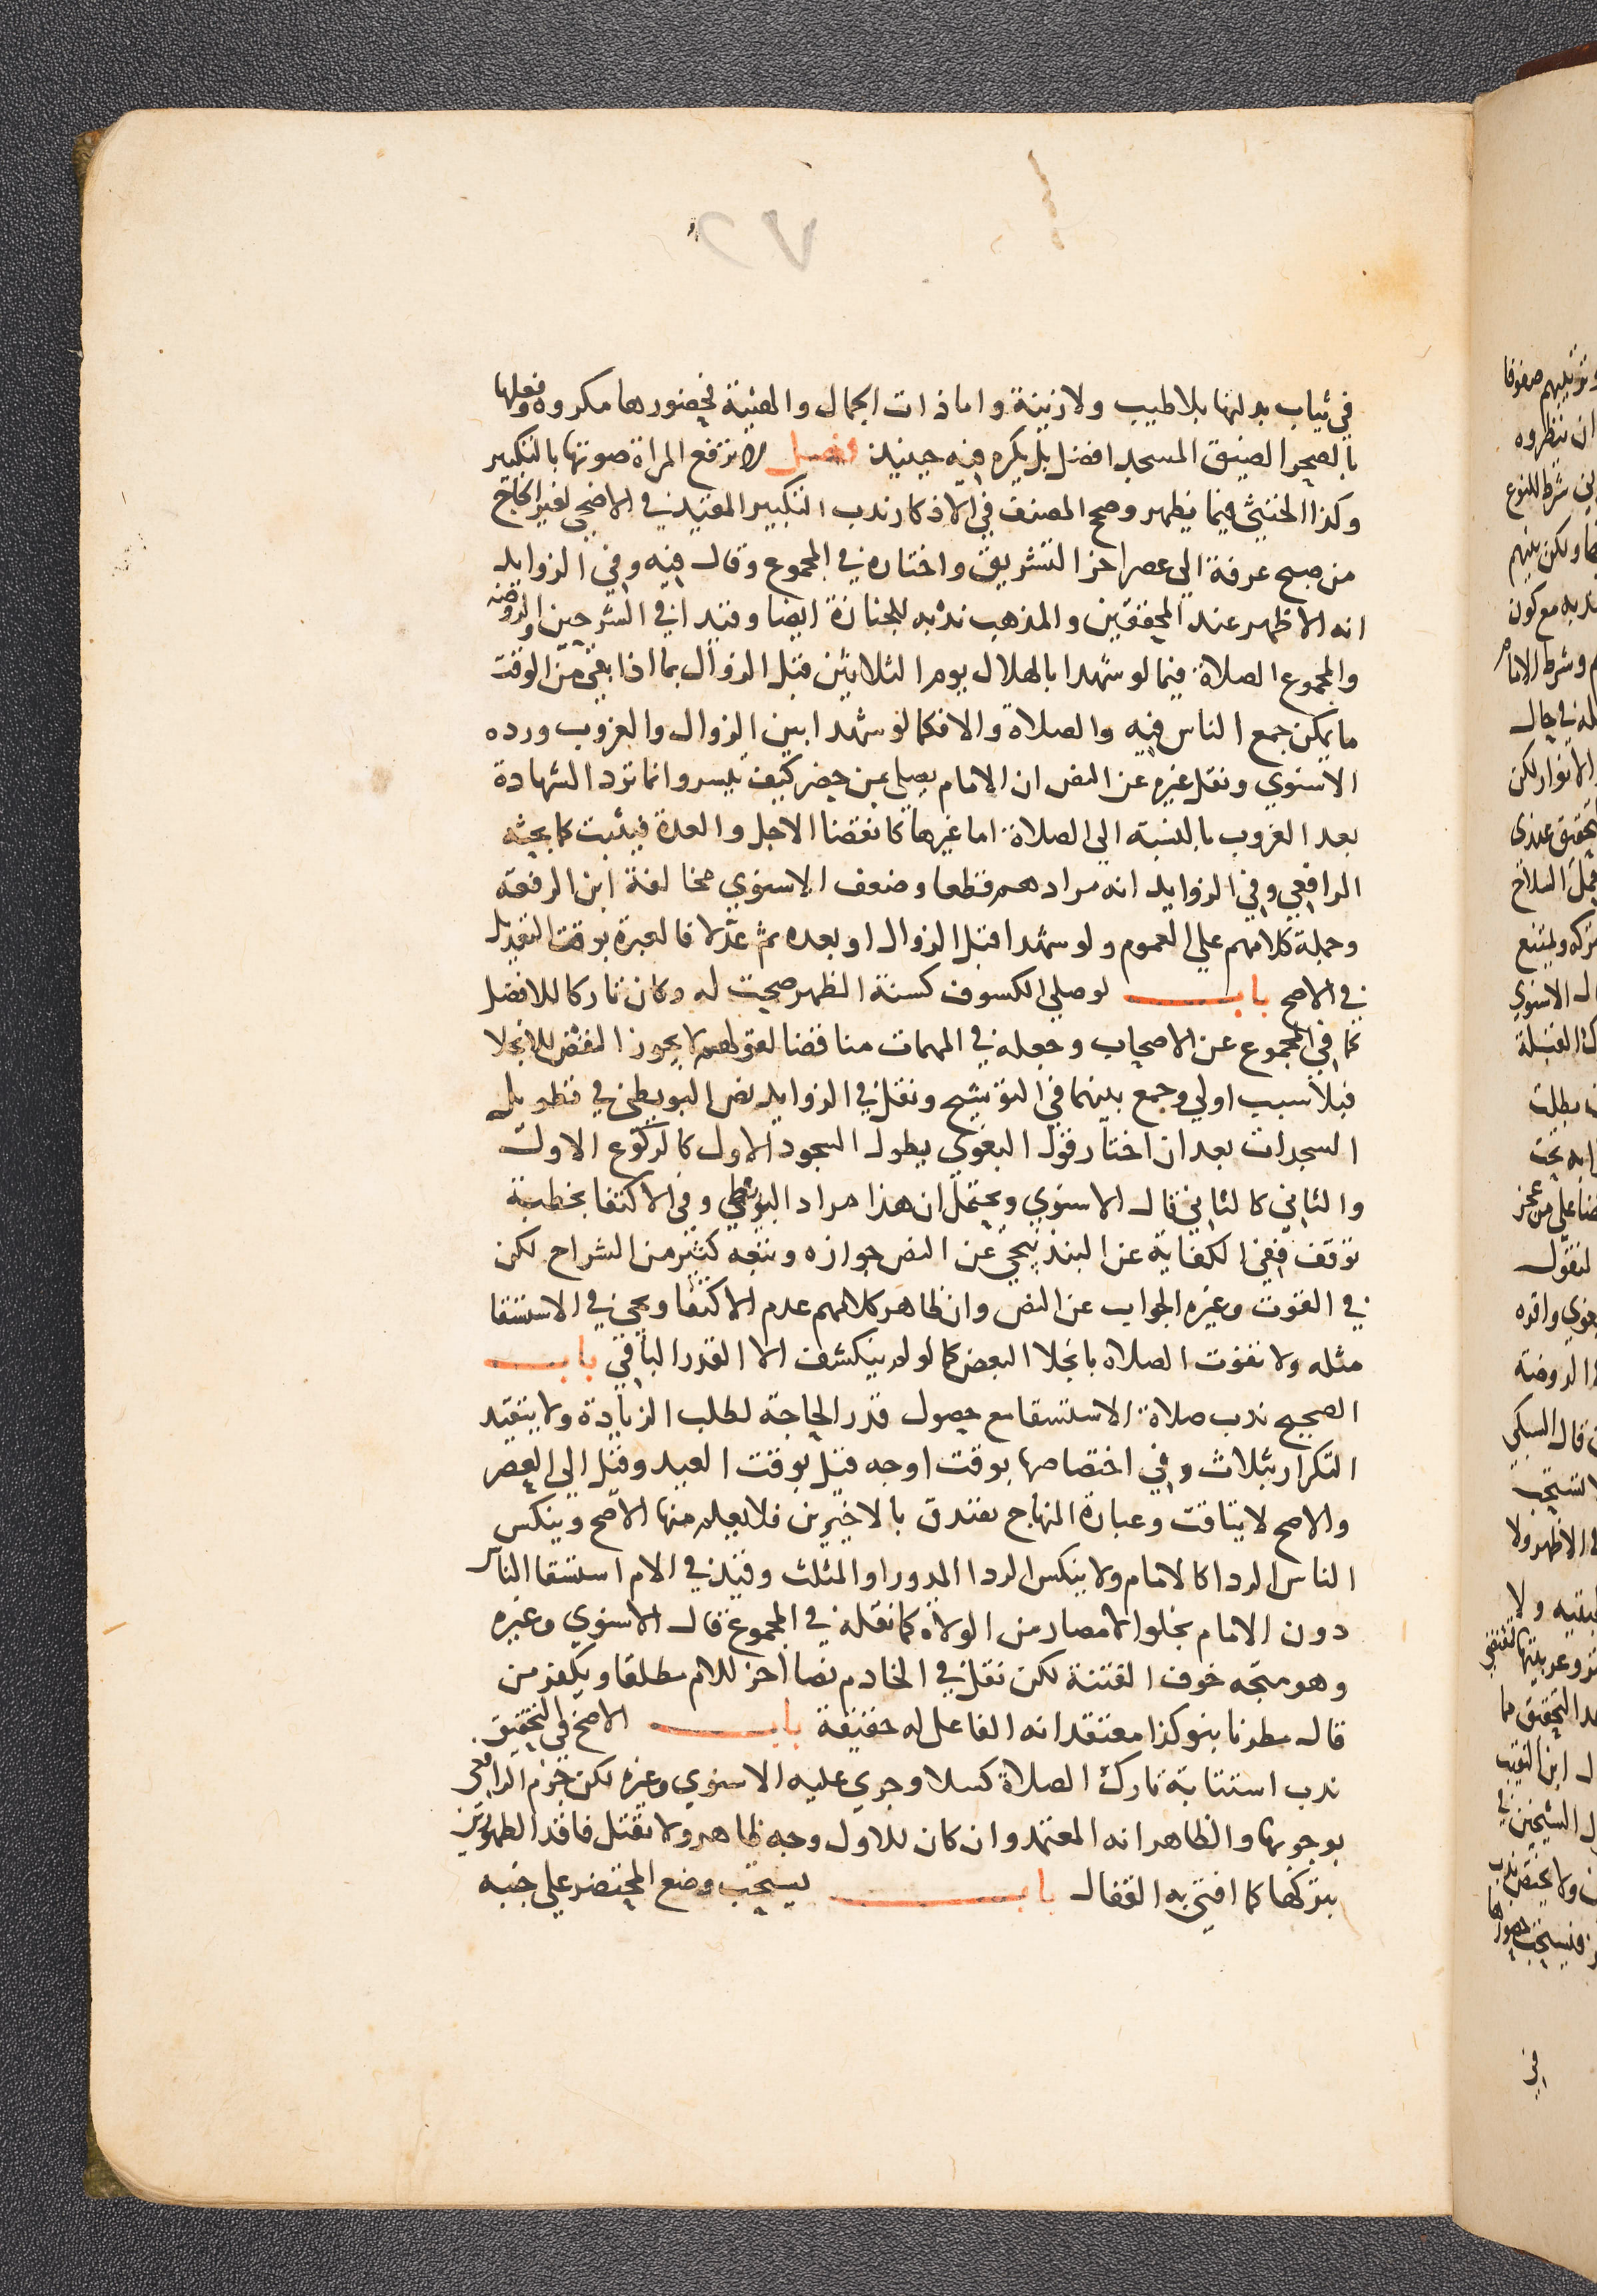 ٧٢
في ثياب بدلتها بلا طيب ولا زينة واما ذات الجمال والهيئة فحضورها مكروه وفعلها
بالصحرا لضيق المسجد افضل بل يكره فيه حينيذ فصل لا ترفع المراة صوتها بالتكبير
وكذا الخنثي فيما يظهر وصحح المصنف في الاذكار ندب التكبير المقيد في الاضحي لغير الحاج
من صبح عرفة الي عصر اخر التشريق واختاره في المجموع وقال فيه وفي الزوايد
انه الاظهر عند المحققين والمذهب ندبه للجنازة ايضا وقيدا في الشرحين والروضه
والمجموع الصلاة فيما لو شهدا بالهلال يوم الثلاثين قبل الزوال بما اذا بقي من الوقت
ما يمكن جمع الناس فيه والصلاة والا فكما لو شهدا بين الزوال والغروب ورده
الاسنوي ونقل غيره عن النص ان الامام يصلي بمن حضر كيف تيسر وانما ترد الشهادة
بعد الغروب بالنسبة الي الصلاة اما غيرها كانقضا الاجل والعدة فيثبت كما بحثه
الرافعي وفي الزوايد انه مرادهم قطعا وضعف الاسنوي مخالفة ابن الرفعة
وحمله كلامهم علي العموم ولو شهدا قبل الزوال او بعده ثم عدلا فالعبرة بوقت التعديل
في الاصح باب لو صلي الكسوف كسنة الظهر صحت له وكان تاركا للافضل
كما في المجموع عن الاصحاب وجعله في المهمات مناقضا لقولهم لا يجوز النقص للانجلا
فبلا سبب اولي وجمع بينهما في التوشيح ونقل في الزوايد نص البويطي في تطويل
السجدات بعد ان اختار قول البغوي يطول السجود الاول كالركوع الاول
والثاني كالثاني قال الاسنوي ويحتمل ان هذا مراد البويطي وفي الاكتفا بخطبة
توقف ففي الكفاية عن البندنيجي عن النص جوازه وتبعه كثير من الشراح لكن
في القوت وغيره الجواب عن النص وان ظاهر كلامهم عدم الاكتفا ويجي في الاستسقا
مثله ولا تفوت الصلاه بانجلا البعض كما لو لم ينكشف الا القدر الباقي باب
الصحيح ندب صلاة الاستسقا مع حصول قدر الحاجة لطلب الزيادة ولا يتقيد
التكرار بثلاث وفي اختصاصها بوقت اوجه قيل بوقت العيد وقيل الي العصر
والاصح لا يتاقت وعبارة المنهاج تصدق بالاخيرين فلا يعلم منها الاصح وينكس
الناس الردا كالامام ولا ينكس الردا المدور او المثلث وقيد في الام استسقا الناس
دون الامام بخلو الامصار من الولاة كما نقله في المجموع قال الاسنوي وغيره
وهو متجه خوف الفتنة لكن نقل في الخادم نصا اخر للام مطلقا ويكفر من
قال مطرنا بنو كذا معتقدا انه الفاعل له حقيقة باب الاصح في التحقيق
ندب استتابة تارك الصلاة كسلا وجري عليه الاسنوي وغيره لكن جزم الرافعي
بوجوبها والظاهر انه المعتمد وان كان للاول وجه ظاهر ولا يقتل فاقد الطهورين
بتركها كما افتي به القفال باب يستحب وضع المحتضر علي جنبه